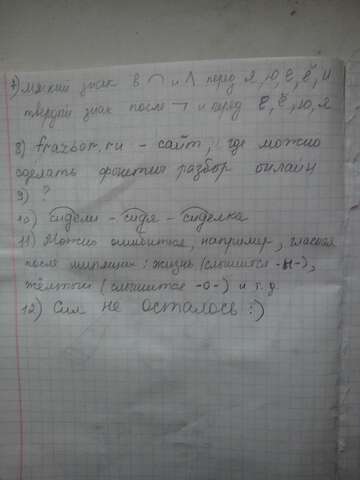 7) мягкий знак в ¬ и ^ перед я, ю, е, ё, и
твёрдый знак после ¬ и перед е, ё, ю, я
8) frazbor.ru - сайт, где можно
сделать фонетич разбор онлайн
9) ?
10) сидели - сидя - сиделка
11) Можно ошибиться, например, гласная
после шипящих: жизнь (слышится -ы-),
жёлтый (слышится -о-) и т.д.
12) Сил не осталось :)